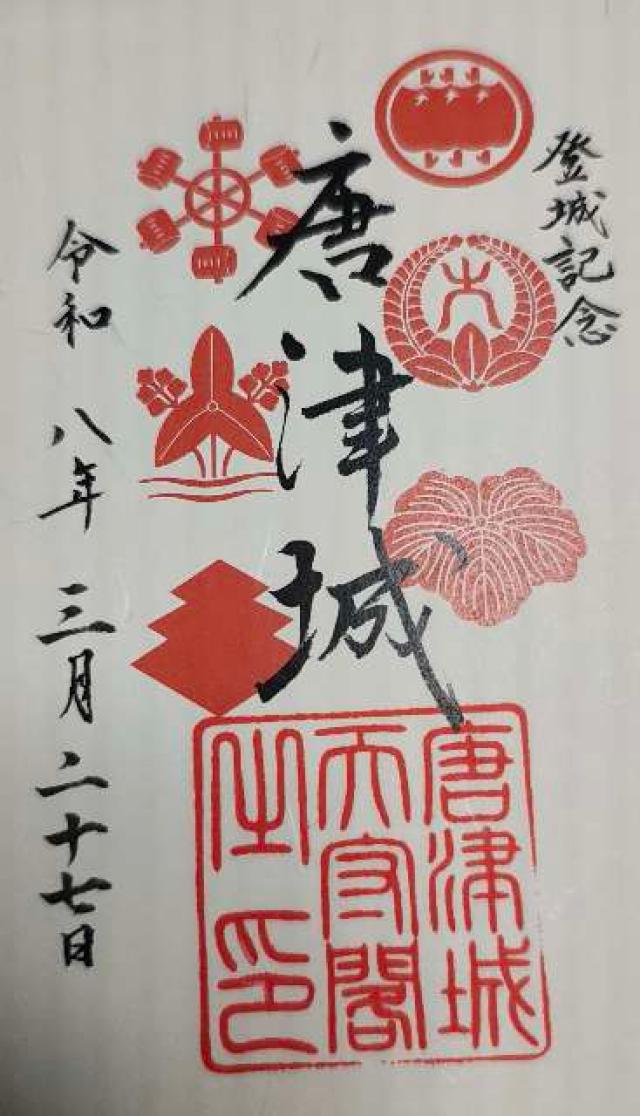 登城記念
唐津城
令和 八年 三月 二十七日
唐津城
天守閣
之印